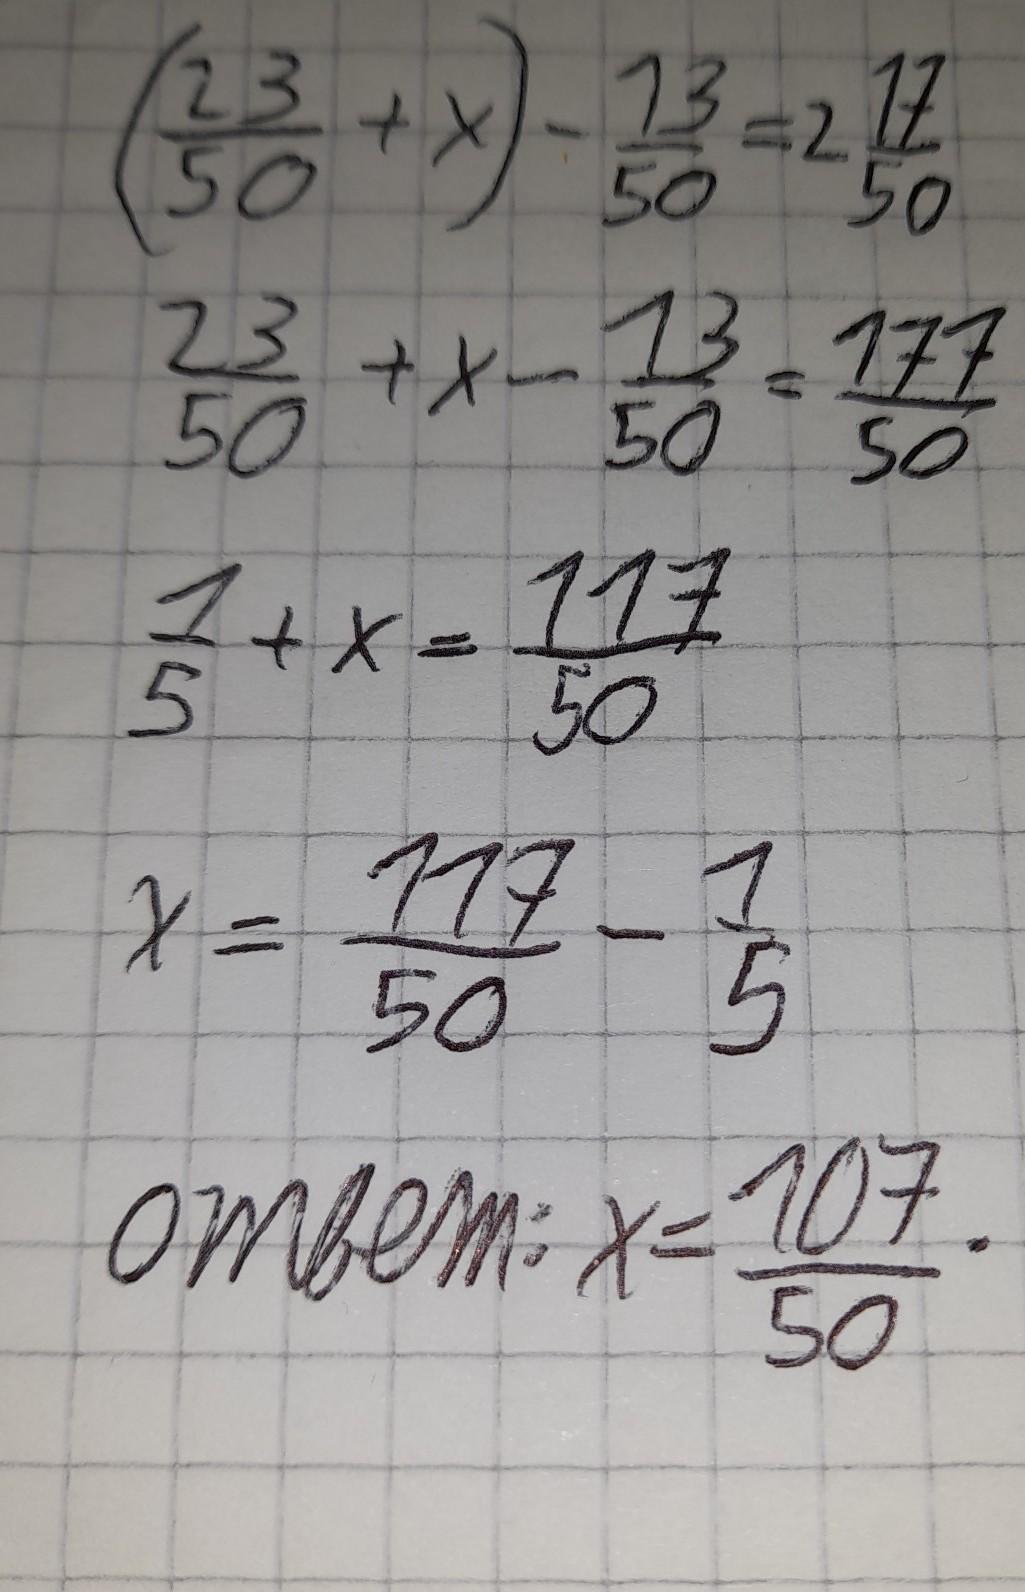 (23/50 + x) - 13/50 = 2 17/50
23/50 + x - 13/50 = 117/50
1/5 + x = 117/50
x = 117/50 - 1/5
ответ: x = 107/50.